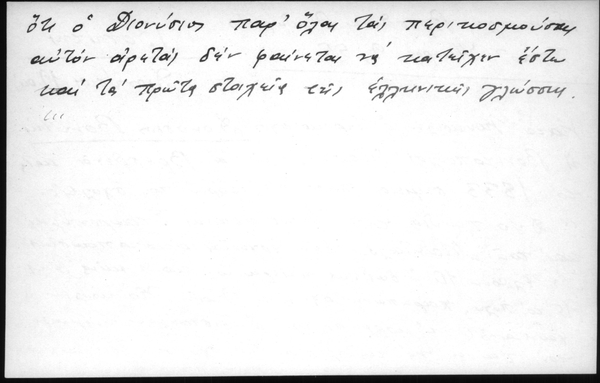 ὅτι ὁ Διονύσιος παρ' ὅλας τάς περικοσμούσας
αὐτόν ἀρετάς δέν φαίνεται νά κατεῖχεν ἔστω
καί τά πρῶτα στοιχεῖα τῆς ἑλληνικῆς γλώσσης.